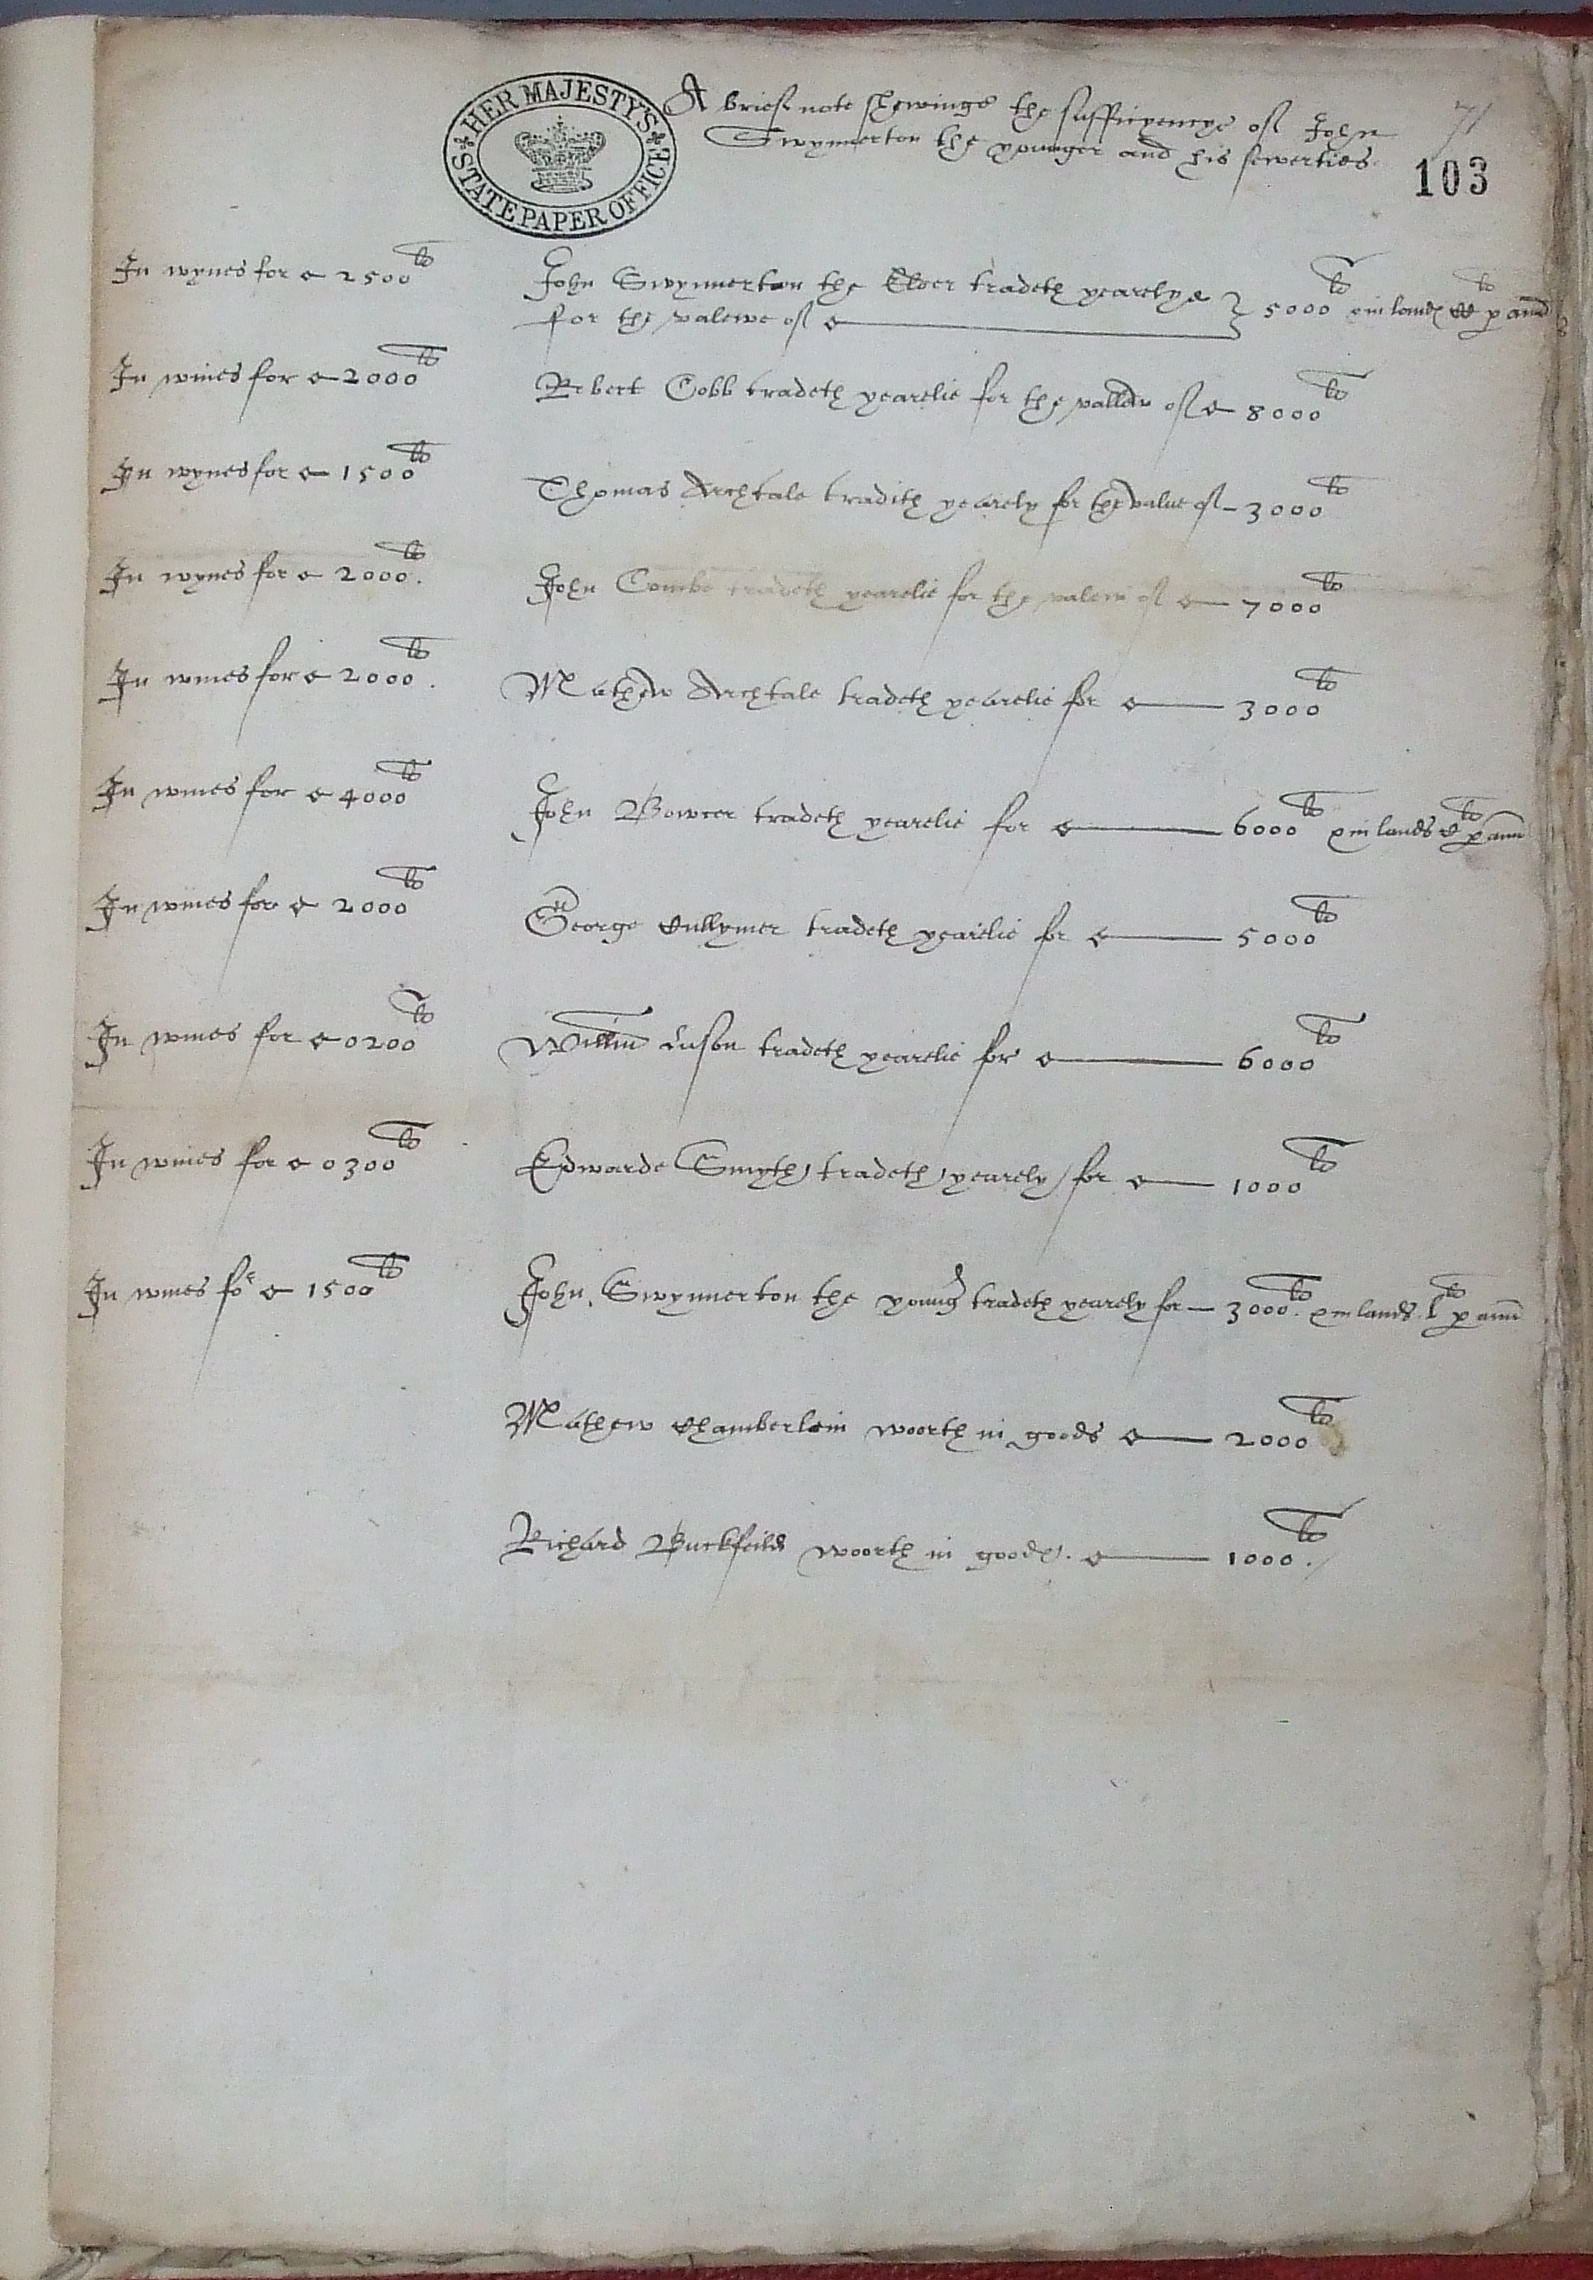 HER MAJESTY'S STATE PAPER OFFICE
A brief note shewinge the sufficyencye of John
Swynnerton the younger and his sewerties
71
103
In wynes for 2500 li
John Swynnerton the Elder tradeth yearelye
for the valewe of 5000 li in lands li p ann
In wines for 2000 li
Robert Cobb tradeth yearelie for the vallew of 8000 li
In wynes for 1500 li
Thomas Archdale tradith yearely for the value of 3000 li
In wynes for 2000 li.
John Combe tradeth yearelie for the valew of 7000 li
In wines for 2000 li.
Mathew Archdale tradeth yearelie for 3000 li
In wines for 4000 li
John Bowcer tradeth yearelie for 6000 li in lands C li p ann
In wines for 2000 li
George Cullymer tradeth yearelie for 5000 li
In wines for 0200 li
Willm tradeth yearelie for 6000 li
In wines for 0300 li
Edwarde Smyth tradeth yearely for 1000 li
In wines for 1500 li
John Swynnerton the young tradeth yearely for 3000 li. in lands. L li p ann
Mathew Chamberlain woorth in goods 2000 li
Richard Buckfeild woorth in goods. 1000 li.